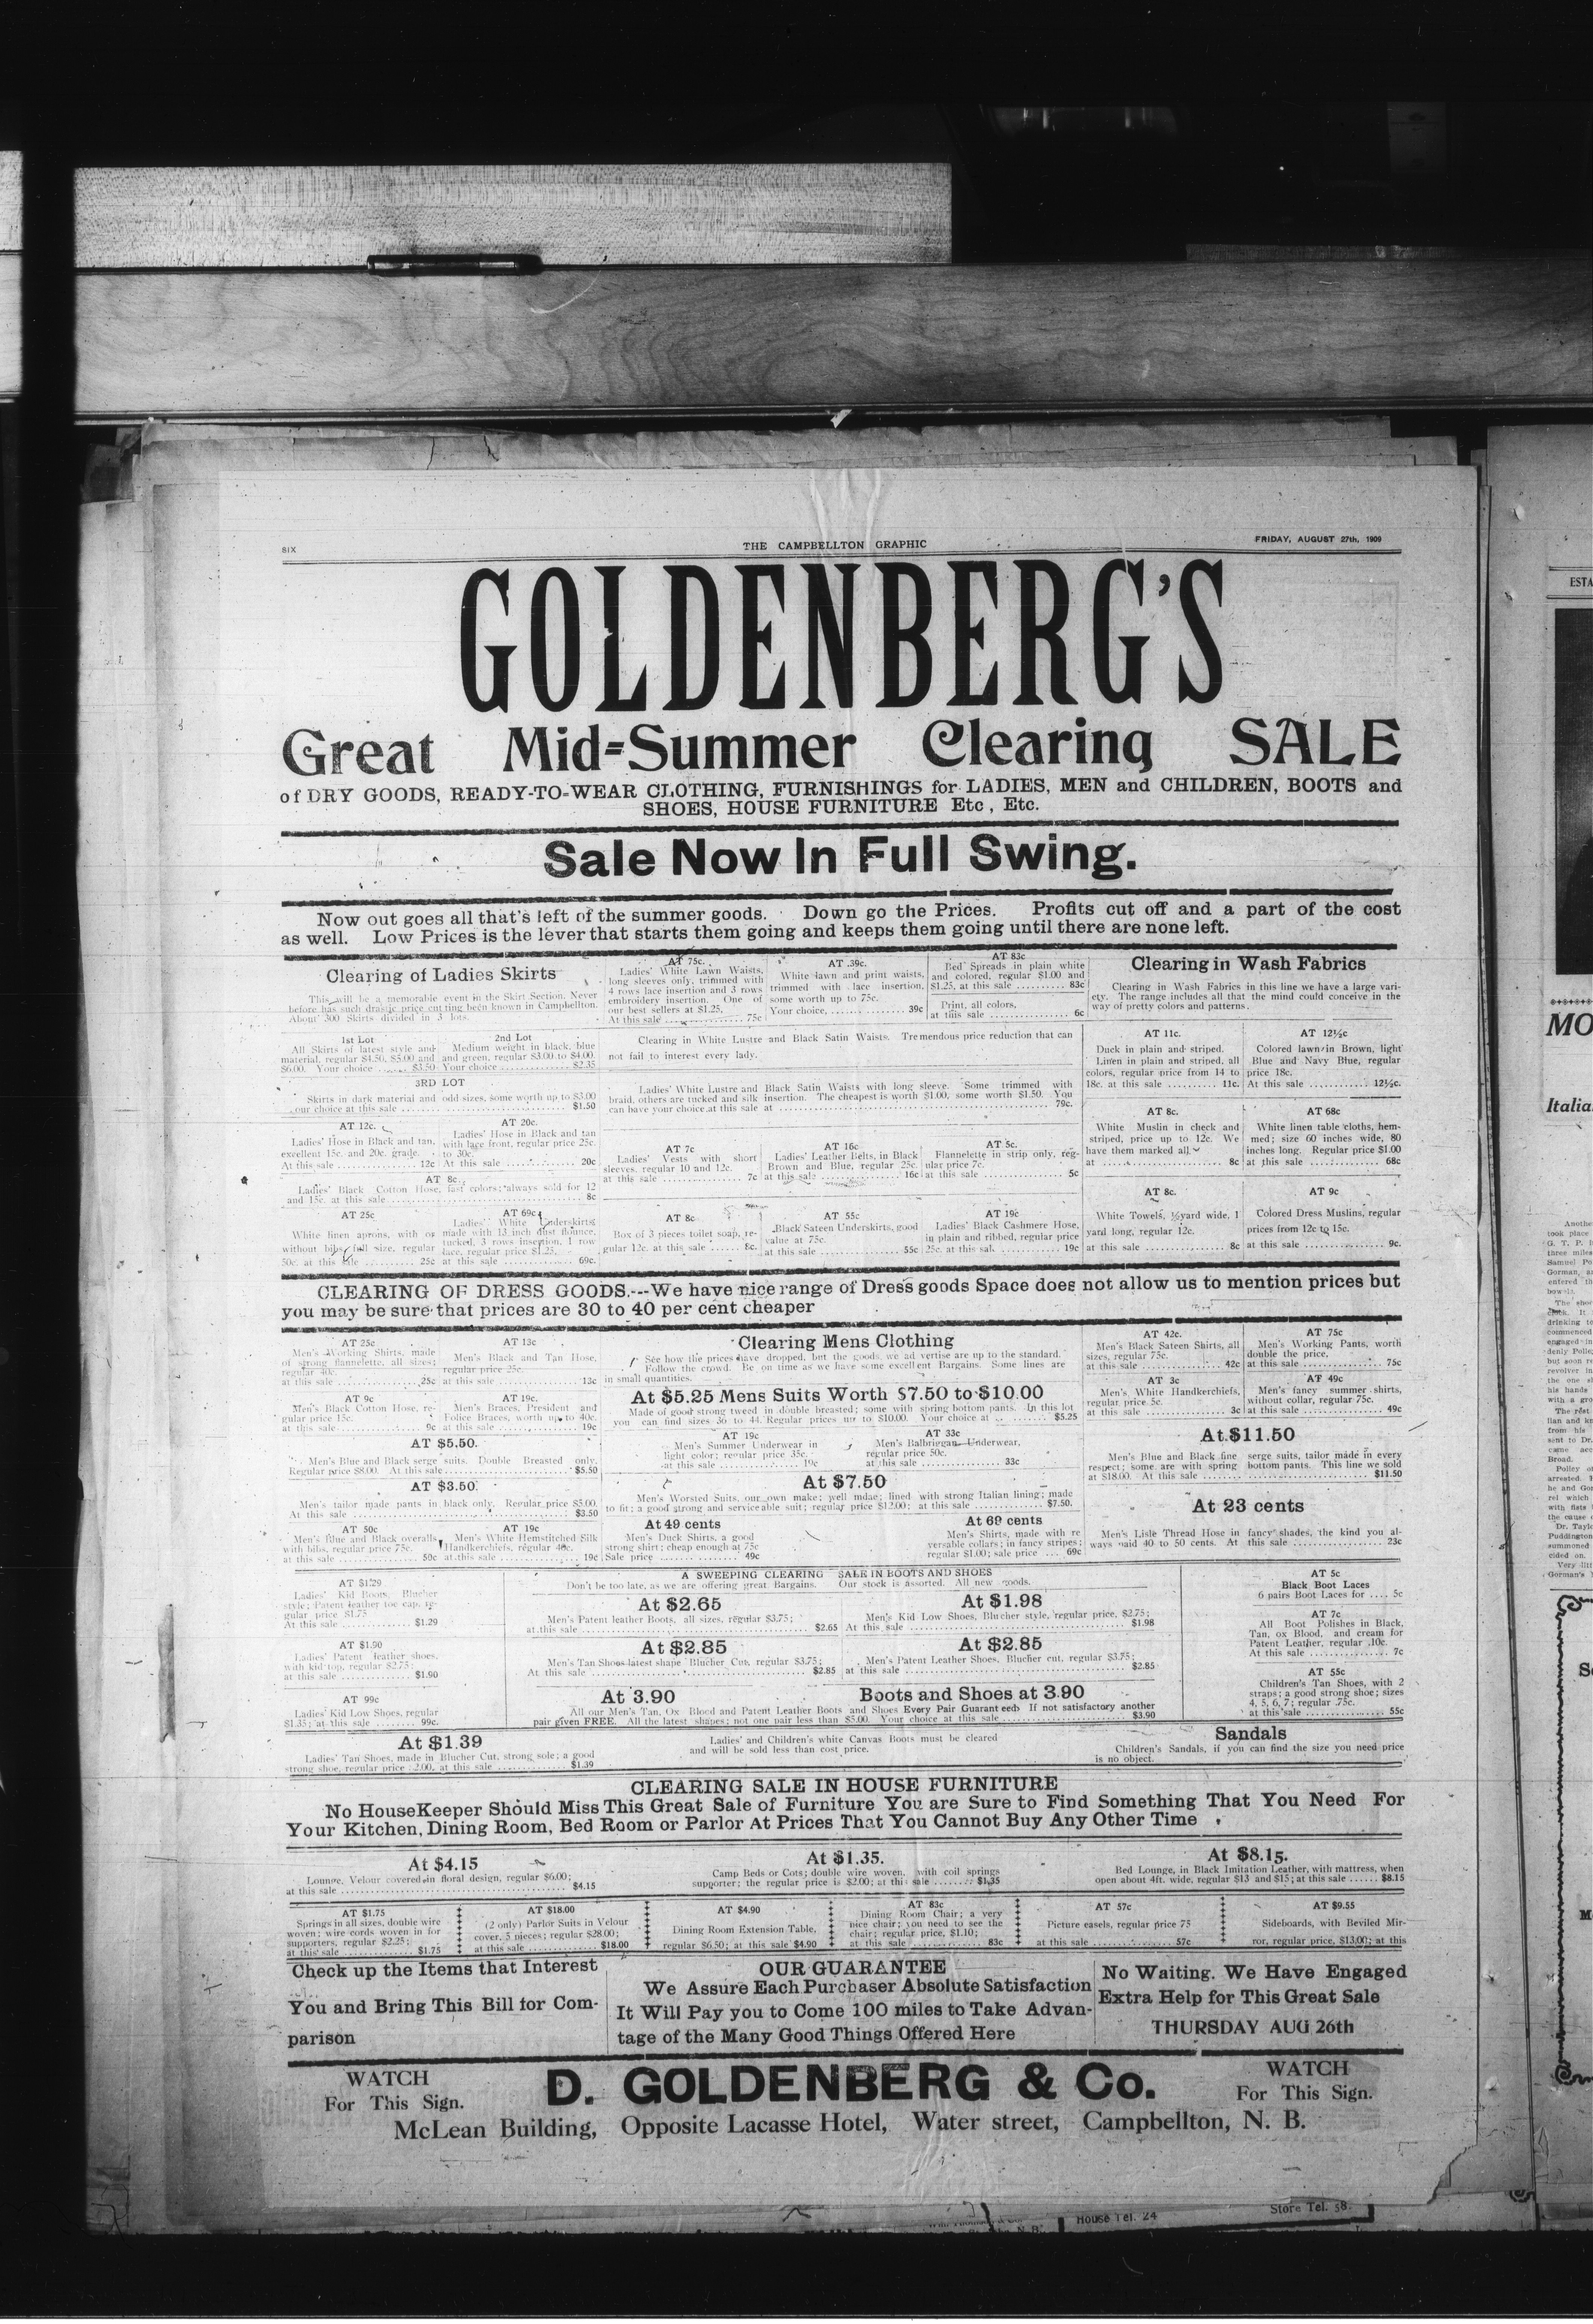 SIX
THE CAMPBELLTON GRAPHIC
FRIDAY, AUGUST 27th, 1909
GOLDENBERG'S
Great Mid=Summer Clearing SALE
of DRY GOODS, READY-TO=WEAR CLOTHING, FURNISHINGS for LADIES, MEN and CHILDREN, BOOTS and
SHOES, HOUSE FURNITURE Etc , Etc.
Sale Now In Full Swing.
Now out goes all that's left of the summer goods. Down go the Prices. Profits cut off and a part of the cost
as well. Low Prices is the lever that starts them going and keeps them going until there are none left.
Clearing of Ladies Skirts
This will be a memorable event in the Skirt Section. Never
before has such drastic price cutting been known in Campbellton.
About 300 Skirts divided in 3 lots.
1st Lot
All Skirts of latest style and
material, regular $4.50, $5.00 and
$6.00. Your choice ...... $3.50
2nd Lot
Medium weight in black, blue
and green, regular $3.00 to $4.00.
Your choice .............. $2.35
3RD LOT
Skirts in dark material and odd sizes, some worth up to $3.00
our choice at this sale .............. $1.50
AT 12c.
Ladies' Hose in Black and tan,
excellent 15c. and 20c. grade.
At this sale .............. 12c
AT 20c.
Ladies' Hose in Black and tan
with lace front, regular price 25c.
to 30c.
At this sale .............. 20c
AT 8c.
Ladies' Black Cotton Hose, fast colors; always sold for 12
and 15c. at this sale .............. 8c
AT 25c
White linen aprons, with or
without bibs, full size, regular
50c. at this sale .......... 25c
AT 69c
Ladies' White Underskirts
made with 13 inch dust flounce,
tucked, 3 rows insertion, 1 row
lace, regular price $1.25,
at this sale .............. 69c.
AT 75c.
Ladies' White Lawn Waists,
long sleeves only, trimmed with
4 rows lace insertion and 3 rows
embroidery insertion. One of
our best sellers at $1.25.
At this sale .............. 75c
AT .39c.
White lawn and print waists,
trimmed with lace insertion,
some worth up to 75c.
Your choice, .............. 39c
AT 83c
Bed Spreads in plain white
and colored, regular $1.00 and
$1.25, at this sale .......... 83c
Print, all colors,
at this sale .............. 6c
Clearing in White Lustre and Black Satin Waists. Tremendous price reduction that can
not fail to interest every lady.
Ladies' White Lustre and Black Satin Waists with long sleeve. Some trimmed with
braid, others are tucked and silk insertion. The cheapest is worth $1.00, some worth $1.50. You
can have your choice at this sale at .............. 79c.
AT 7c
Ladies' Vests with short
sleeves, regular 10 and 12c.
at this sale .............. 7c
AT 16c
Ladies' Leather Belts, in Black
Brown and Blue, regular 25c.
at this sale .............. 16c
AT 5c.
Flannelette in strip only, reg-
ular price 7c.
at this sale .............. 5c
AT 8c
Box of 3 pieces toilet soap, re-
gular 12c. at this sale ...... 8c.
AT 55c
Black Sateen Underskirts, good
value at 75c.
at this sale .............. 55c
AT 19c
Ladies' Black Cashmere Hose,
in plain and ribbed, regular price
25c. at this sal. .............. 19c
Clearing in Wash Fabrics
Clearing in Wash Fabrics in this line we have a large vari-
ety. The range includes all that the mind could conceive in the
way of pretty colors and patterns.
AT 11c.
Duck in plain and striped.
Linen in plain and striped, all
colors, regular price from 14 to
18c. at this sale .......... 11c.
AT 12½c
Colored lawn in Brown, light
Blue and Navy Blue, regular
price 18c.
At this sale ............ 12½c.
AT 8c.
White Muslin in check and
striped, price up to 12c. We
have them marked all
at .............. 8c
AT 68c
White linen table cloths, hem-
med; size 60 inches wide, 80
inches long. Regular price $1.00
at this sale .............. 68c
AT 8c.
White Towels, ½yard wide, 1
yard long, regular 12c.
at this sale .............. 8c
AT 9c
Colored Dress Muslins, regular
prices from 12c to 15c.
at this sale .............. 9c.
CLEARING OF DRESS GOODS.---We have nice range of Dress goods Space does not allow us to mention prices but
you may be sure that prices are 30 to 40 per cent cheaper
AT 25c
Men's Working Shirts, made
of strong flannelette, all sizes;
regular 40c.
at this sale .............. 25c
AT 13c
Men's Black and Tan Hose,
regular price 25c.
at this sale .............. 13c
AT 9c
Men's Black Cotton Hose, re-
gular price 15c.
at this sale .............. 9c
AT 19c.
Men's Braces, President and
Police Braces, worth up to 40c.
at this sale .............. 19c
AT $5.50.
Men's Blue and Black serge suits. Double Breasted only.
Regular price $8.00. At this sale .............. $5.50
AT $3.50.
Men's tailor made pants in black only. Regular price $5.00.
At this sale .............. $3.50
AT 50c
Men's Blue and Black overalls
with bibs, regular price 75c.
at this sale .............. 50c
AT 19c
Men's White Hemstitched Silk
Handkerchiefs, regular 40c.
at this sale .............. 19c
Clearing Mens Clothing
See how the prices have dropped, but the goods we ad vertise are up to the standard.
Follow the crowd. Be on time as we have some excellent Bargains. Some lines are
in small quantities.
At $5.25 Mens Suits Worth $7.50 to $10.00
Made of good strong tweed in double breasted; some with spring bottom pants. In this lot
you can find sizes 36 to 44. Regular prices up to $10.00. Your choice at .............. $5.25
AT 19c
Men's Summer Underwear in
light color; regular price 35c.
at this sale .............. 19c
AT 33c
Men's Balbriggan Underwear,
regular price 50c.
at this sale .............. 33c
At $7.50
Men's Worsted Suits, our own make; well mdae; lined with strong Italian lining; made
to fit; a good strong and serviceable suit; regular price $12.00; at this sale .............. $7.50.
At 49 cents
Men's Duck Shirts, a good
strong shirt; cheap enough at 75c
Sale price .............. 49c
At 69 cents
Men's Shirts, made with re
versable collars; in fancy stripes;
regular $1.00; sale price .... 69c
AT 42c.
Men's Black Sateen Shirts, all
sizes, regular 75c.
at this sale .............. 42c
AT 75c
Men's Working Pants, worth
double the price,
at this sale .............. 75c
AT 3c
Men's, White Handkerchiefs,
regular price 5c.
at this sale .............. 3c
AT 49c
Men's fancy summer shirts,
without collar, regular 75c.
at this sale .............. 49c
At $11.50
Men's Blue and Black fine serge suits, tailor made in every
respect; some are with spring bottom pants. This line we sold
at $18.00. At this sale .............. $11.50
At 23 cents
Men's Lisle Thread Hose in fancy shades, the kind you al-
ways paid 40 to 50 cents. At this sale .............. 23c
AT $1.29
Ladies' Kid Boots, Blucher
style; Patent leather toe cap, re-
gular price $1.75
At this sale .............. $1.29
AT $1.90
Ladies' Patent leather shoes,
with kid top, regular $2.75
at this sale .............. $1.90
AT 99c
Ladies' Kid Low Shoes, regular
$1.35; at this sale ........ 99c.
A SWEEPING CLEARING SALE IN BOOTS AND SHOES
Don't be too late, as we are offering great Bargains. Our stock is assorted. All new goods.
At $2.65
Men's Patent leather Boots, all sizes, regular $3.75;
at this sale .............. $2.65
At $1.98
Men's Kid Low Shoes, Blucher style, regular price, $2.75;
At this sale .............. $1.98
At $2.85
Men's Tan Shoes latest shape Blucher Cut, regular $3.75;
At this sale .............. $2.85
At $2.85
Men's Patent Leather Shoes, Blucher cut, regular $3.75;
at this sale .............. $2.85
At 3.90 Boots and Shoes at 3.90
All our Men's Tan, Ox Blood and Patent Leather Boots and Shoes Every Pair Guaranteed If not satisfactory another
pair given FREE. All the latest shapes; not one pair less than $5.00. Your choice at this sale .............. $3.90
AT 5c
Black Boot Laces
6 pairs Boot Laces for .... 5c
AT 7c
All Boot Polishes in Black,
Tan, ox Blood, and cream for
Patent Leather, regular .10c.
At this sale .............. 7c
AT 55c
Children's Tan Shoes, with 2
straps; a good strong shoe; sizes
4, 5, 6, 7; regular .75c.
at this sale .............. 55c
At $1.39
Ladies' Tan Shoes, made in Blucher Cut, strong sole; a good
strong shoe, regular price 2.00, at this sale .............. $1.39
Ladies' and Children's white Canvas Boots must be cleared
and will be sold less than cost price.
Sandals
Children's Sandals, if you can find the size you need price
is no object.
CLEARING SALE IN HOUSE FURNITURE
No HouseKeeper Should Miss This Great Sale of Furniture You are Sure to Find Something That You Need For
Your Kitchen, Dining Room, Bed Room or Parlor At Prices That You Cannot Buy Any Other Time
At $4.15
Lounge, Velour covered in floral design, regular $6.00;
at this sale .............. $4.15
At $1.35.
Camp Beds or Cots; double wire woven, with coil springs
supporter; the regular price is $2.00; at this sale ........ $1.35
At $8.15.
Bed Lounge, in Black Imitation Leather, with mattress, when
open about 4ft. wide, regular $13 and $15; at this sale ...... $8.15
AT $1.75
Springs in all sizes, double wire
woven; wire cords woven in for
supporters, regular $2.25;
at this sale .............. $1.75
AT $18.00
(2 only) Parlor Suits in Velour
cover, 5 pieces; regular $28.00;
at this sale .............. $18.00
AT $4.90
Dining Room Extension Table,
regular $6.50; at this sale $4.90
AT 83c
Dining Room Chair; a very
nice chair; you need to see the
chair; regular price, $1.10;
at this sale .............. 83c
AT 57c
Picture easels, regular price 75
at this sale .............. 57c
AT $9.55
Sideboards, with Beviled Mir-
ror, regular price, $13.00; at this
Check up the Items that Interest
You and Bring This Bill for Com-
parison
OUR GUARANTEE
We Assure Each Purchaser Absolute Satisfaction
It Will Pay you to Come 100 miles to Take Advan-
tage of the Many Good Things Offered Here
No Waiting. We Have Engaged
Extra Help for This Great Sale
THURSDAY AUG 26th
WATCH
For This Sign.
D. GOLDENBERG & Co.
WATCH
For This Sign.
McLean Building, Opposite Lacasse Hotel, Water street, Campbellton, N. B.
House Tel. 24
Store Tel. 58.
ESTA
MO
Italia